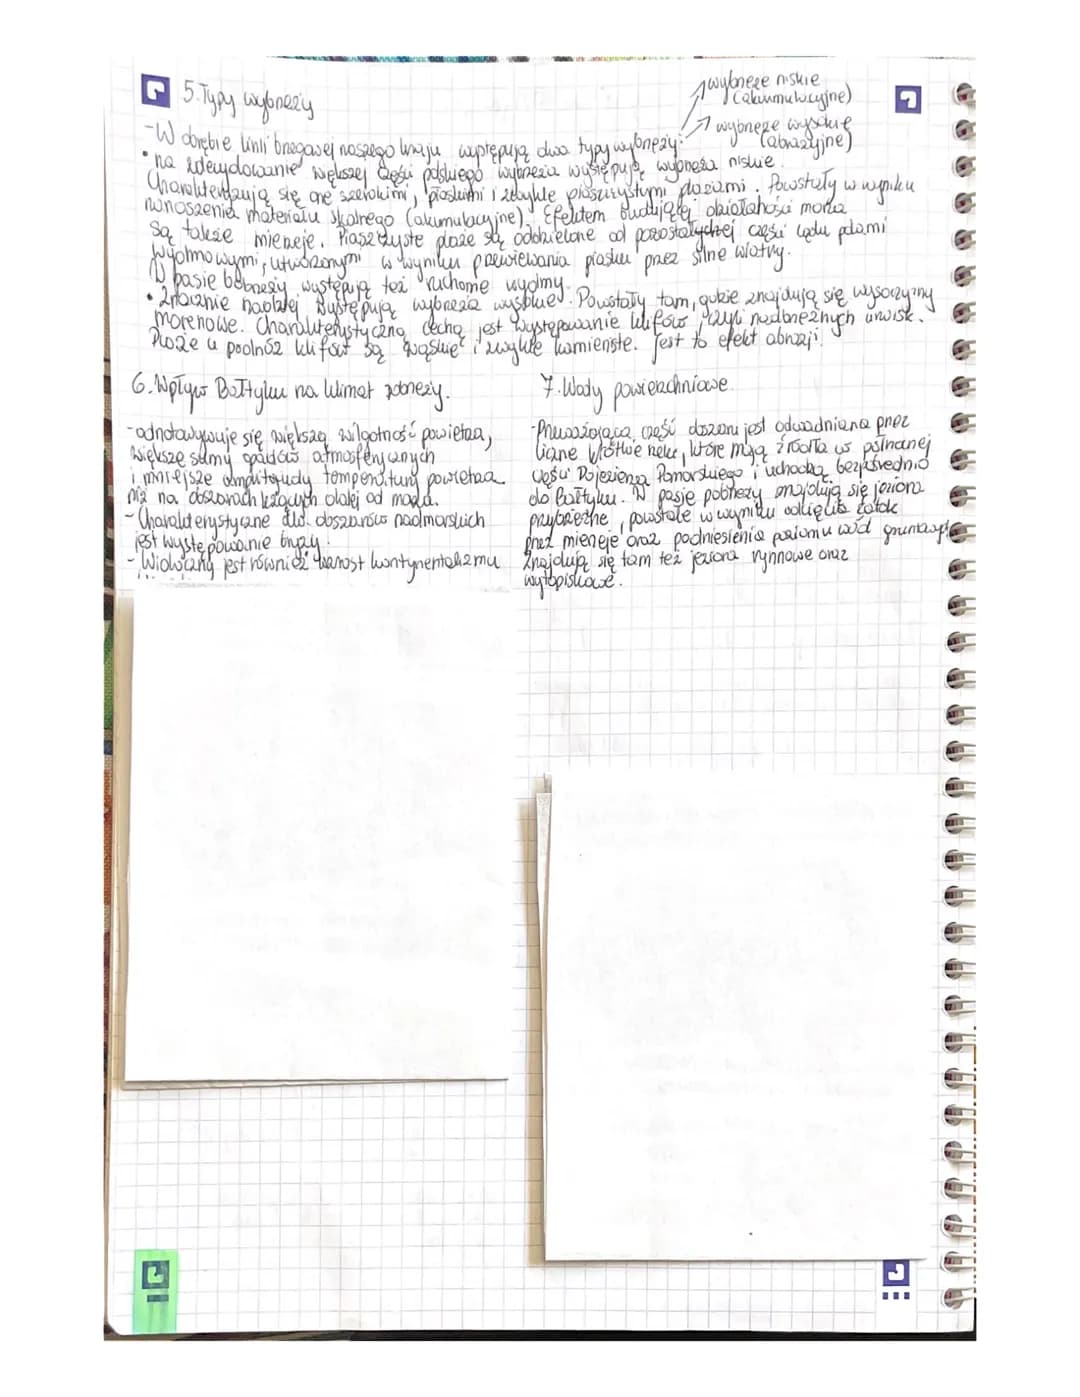 5. Typy wybrzeży
wybrzeże niskie
(akumulacyjne)
wybrzeże wysokie
(abrazyjne)
-W obrębie linii brzegowej naszego kraju występują dwa typy wybrzeży:
• na zdecydowanie większej części polskiego wybrzeża występują wybrzeża niskie.
Charakteryzują się one szerokimi, płaskimi i zwykle piaszczystymi plażami. Powstały w wyniku
nanoszenia materiału skalnego (akumulacyjne). Efektem budującej działalności morza
są także mierzeje. Piaszczyste plaże są oddzielone od pozostałej części lądu pasami
wydmowymi, utworzonymi w wyniku przewiewania piasku przez silne wiatry.
W pasie pobrzeży występują też ruchome wydmy.
• Znacznie rzadziej występują wybrzeża wysokie. Powstały tam, gdzie znajdują się wysoczyzny
morenowe. Charakterystyczną cechą jest występowanie klifów, czyli nadbrzeżnych urwisk.
Plaże u podnóż klifów są wąskie i zwykle kamieniste. Jest to efekt abrazji.
6. Wpływ Bałtyku na klimat pobrzeży.
-odnotowywuje się większą wilgotność powietrza,
większe sumy opadów atmosferycznych
i mniejsze amplitudy temperatury powietrza
niż na obszarach leżących dalej od morza.
- Charakterystyczne dla obszarów nadmorskich
jest występowanie bryzy.
- Widoczny jest również wzrost kontynentalizmu
7. Wody powierzchniowe.
-Przeważająca część obszaru jest odwadniana przez
liczne krótkie rzeki, które mają źródła w północnej
części Pojezierza Pomorskiego i uchodzą bezpośrednio
do Bałtyku. W pasie pobrzeży znajdują się jeziora
przybrzeżne, powstałe w wyniku odcięcia zatok
przez mierzeje oraz podniesienia poziomu wód gruntowych
Znajdują się tam też jeziora rynnowe oraz
wytopiskowe.